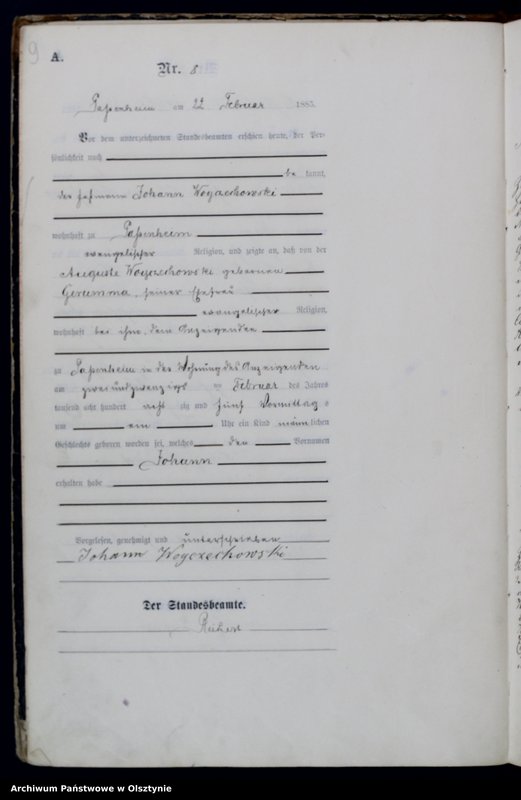 9
A.
Nr. 8
Papenheim am 22 Februar 1885.
Vor dem unterzeichneten Standesbeamten erschien heute, der Per-
sönlichkeit nach
be kannt,
der Johann Wogaechowski
wohnhaft zu Papenheim
evangelischer Religion, und zeigte an, daß von der
Auguste Woyczechowski geborenen
Gerumma, seiner Ehefrau
evangelischer Religion,
wohnhaft bei ihm, dem Anzeigenden
zu Papenheim in der Wohnung des Anzeigenden
am zweiundzwanzigs ten Februar des Jahres
tausend acht hundert acht zig und fünf Vormittag s
um ein Uhr ein Kind männ lichen
Geschlechts geboren worden sei, welches den Vornamen
Johann
erhalten habe
Vorgelesen, genehmigt und unterschrieben
Johann Woyczechowski
Der Standesbeamte.
Archiwum Państwowe w Olsztynie